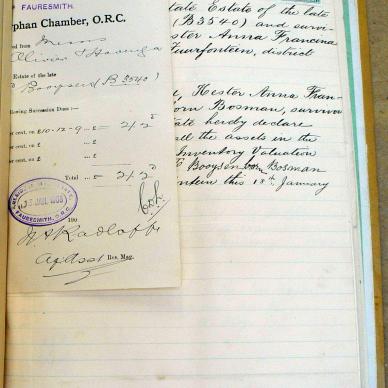 FAURESMITH.
rphan Chamber, O.R.C.
Estate of the late
Booysen (B3540)
lowing Succession Dues :—
cent. on £10-12-9 ... £ = 2/2
cent. on £ ... £
cent. on £
Total ... £ = 2/2
FAURESMITH, O.R.C.
190
Res. Mag.
tate Estate of the late
(B3540) and survi-
ster Anna Francina
fontein, district
Hester Anna Fran-
orn Bosman, survivor
tate hereby declare
ed the assets in the
Inventory Valuation
Booysen born Bosman
ntein this 18th January